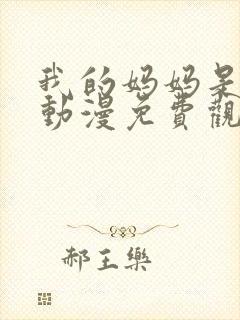 我的妈妈
動漫免費觀
郝王樂